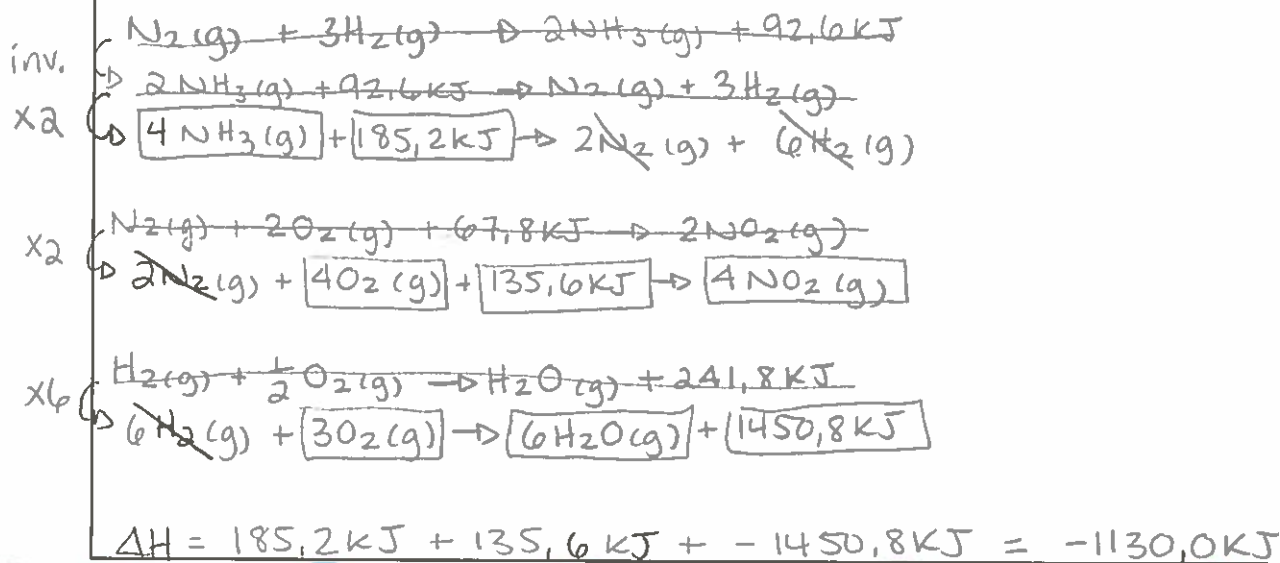 N₂(g) + 3H₂(g) → 2NH₃(g) + 92,6 kJ
inv.
2NH₃(g) + 92,6 kJ → N₂(g) + 3H₂(g)
x2 4NH₃(g) + 185,2 kJ → 2N₂(g) + 6H₂(g)
N₂(g) + 2O₂(g) + 67,8 kJ → 2NO₂(g)
x2
2N₂(g) + 4O₂(g) + 135,6 kJ → 4NO₂(g)
H₂(g) + ½O₂(g) → H₂O(g) + 241,8 kJ
x6
6H₂(g) + 3O₂(g) → 6H₂O(g) + 1450,8 kJ
ΔH = 185,2 kJ + 135,6 kJ + -1450,8 kJ = -1130,0 kJ